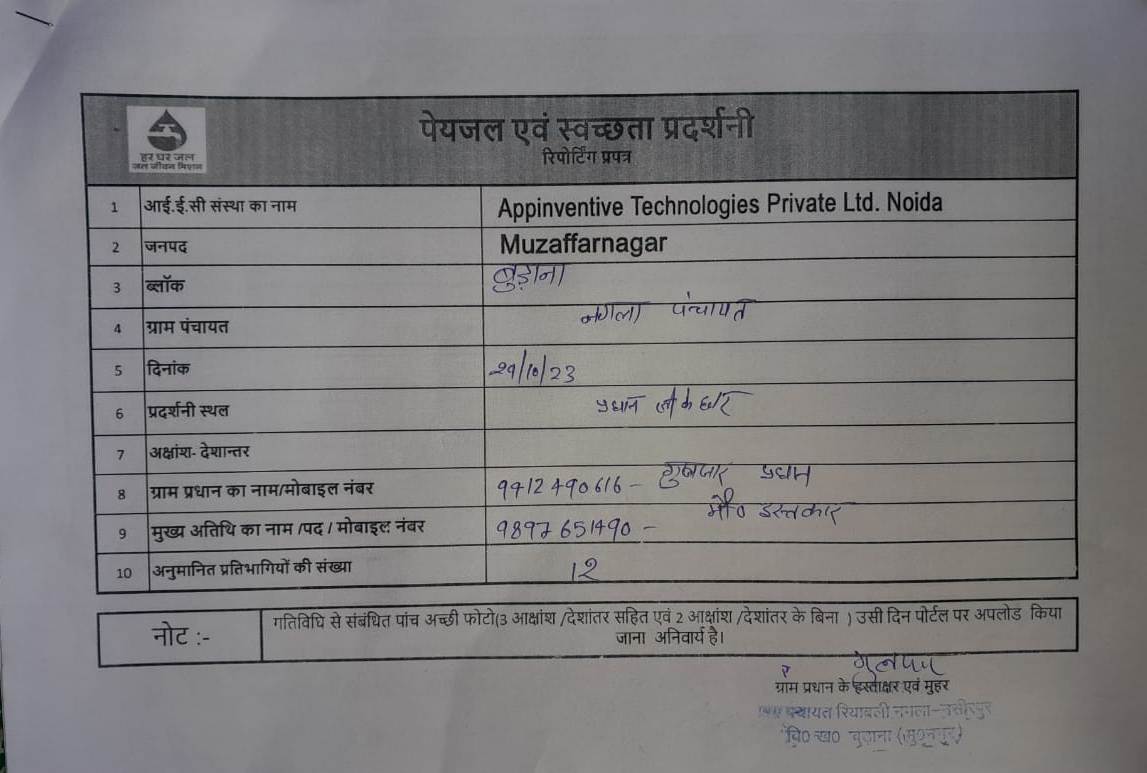 हर घर जल
जल जीवन मिशन
पेयजल एवं स्वच्छता प्रदर्शनी
रिपोर्टिंग प्रपत्र
1 आई.ई.सी संस्था का नाम Appinventive Technologies Private Ltd. Noida
2 जनपद Muzaffarnagar
3 ब्लॉक बुड़ाना
4 ग्राम पंचायत नगला पंचायत
5 दिनांक 29/10/23
6 प्रदर्शनी स्थल प्रधान जी के घर
7 अक्षांश- देशान्तर
8 ग्राम प्रधान का नाम/मोबाइल नंबर 9412490616 - प्रधान
9 मुख्य अतिथि का नाम /पद / मोबाइल नंबर 9897651490 - मौ०
10 अनुमानित प्रतिभागियों की संख्या 12
नोट :- गतिविधि से संबंधित पांच अच्छी फोटो(3 आक्षांश /देशांतर सहित एवं 2 आक्षांश /देशांतर के बिना ) उसी दिन पोर्टल पर अपलोड किया
जाना अनिवार्य है।
ग्राम प्रधान के हस्ताक्षर एवं मुहर
रियावली नगला-
वि० ख० बुढ़ाना